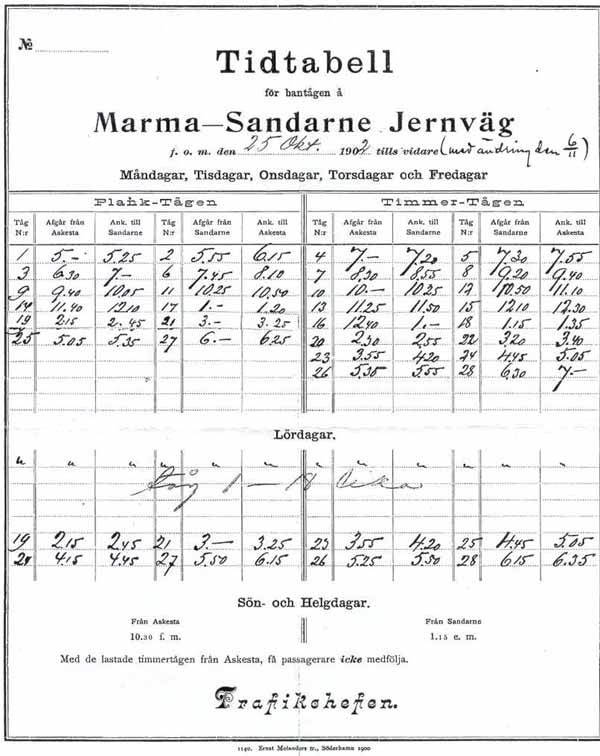 №
Tidtabell
för bantågen å
Marma—Sandarne Jernväg
f. o. m. den 25 Okt. 1902 tills vidare (med ändring den 6/11)
Måndagar, Tisdagar, Onsdagar, Torsdagar och Fredagar
Plank-Tågen Timmer-Tågen
Tåg Afgår från Ank. till Tåg Afgår från Ank. till Tåg Afgår från Ank. till Tåg Afgår från Ank. till
N:r Askesta Sandarne N:r Sandarne Askesta N:r Askesta Sandarne N:r Sandarne Askesta
1 5.– 5.25 2 5.55 6.15 4 7.– 7.20 5 7.30 7.55
3 6.30 7.– 6 7.45 8.10 7 8.30 8.55 8 9.20 9.40
9 9.40 10.05 11 10.25 10.50 10 10.– 10.25 12 10.50 11.10
14 11.40 12.10 17 1.– 1.20 13 11.25 11.50 15 12.10 12.30
19 2.15 2.45 21 3.– 3.25 16 12.40 1.– 18 1.15 1.35
25 5.05 5.35 27 6.– 6.25 20 2.30 2.55 22 3.20 3.40
23 3.55 4.20 24 4.45 5.05
26 5.35 5.55 28 6.30 7.–
Lördagar.
" " " " " " " " " " " "
Tåg 1 – 18 lika
19 2.15 2.45 21 3.– 3.25 23 3.55 4.20 25 4.45 5.05
4.15 4.45 27 5.50 6.15 26 5.25 5.50 28 6.15 6.35
Sön- och Helgdagar.
Från Askesta Från Sandarne
10.30 f. m. 1.15 e. m.
Med de lastade timmertågen från Askesta, få passagerare icke medfölja.
Trafikchefen.
1140. Ernst Molanders tr., Söderhamn 1900